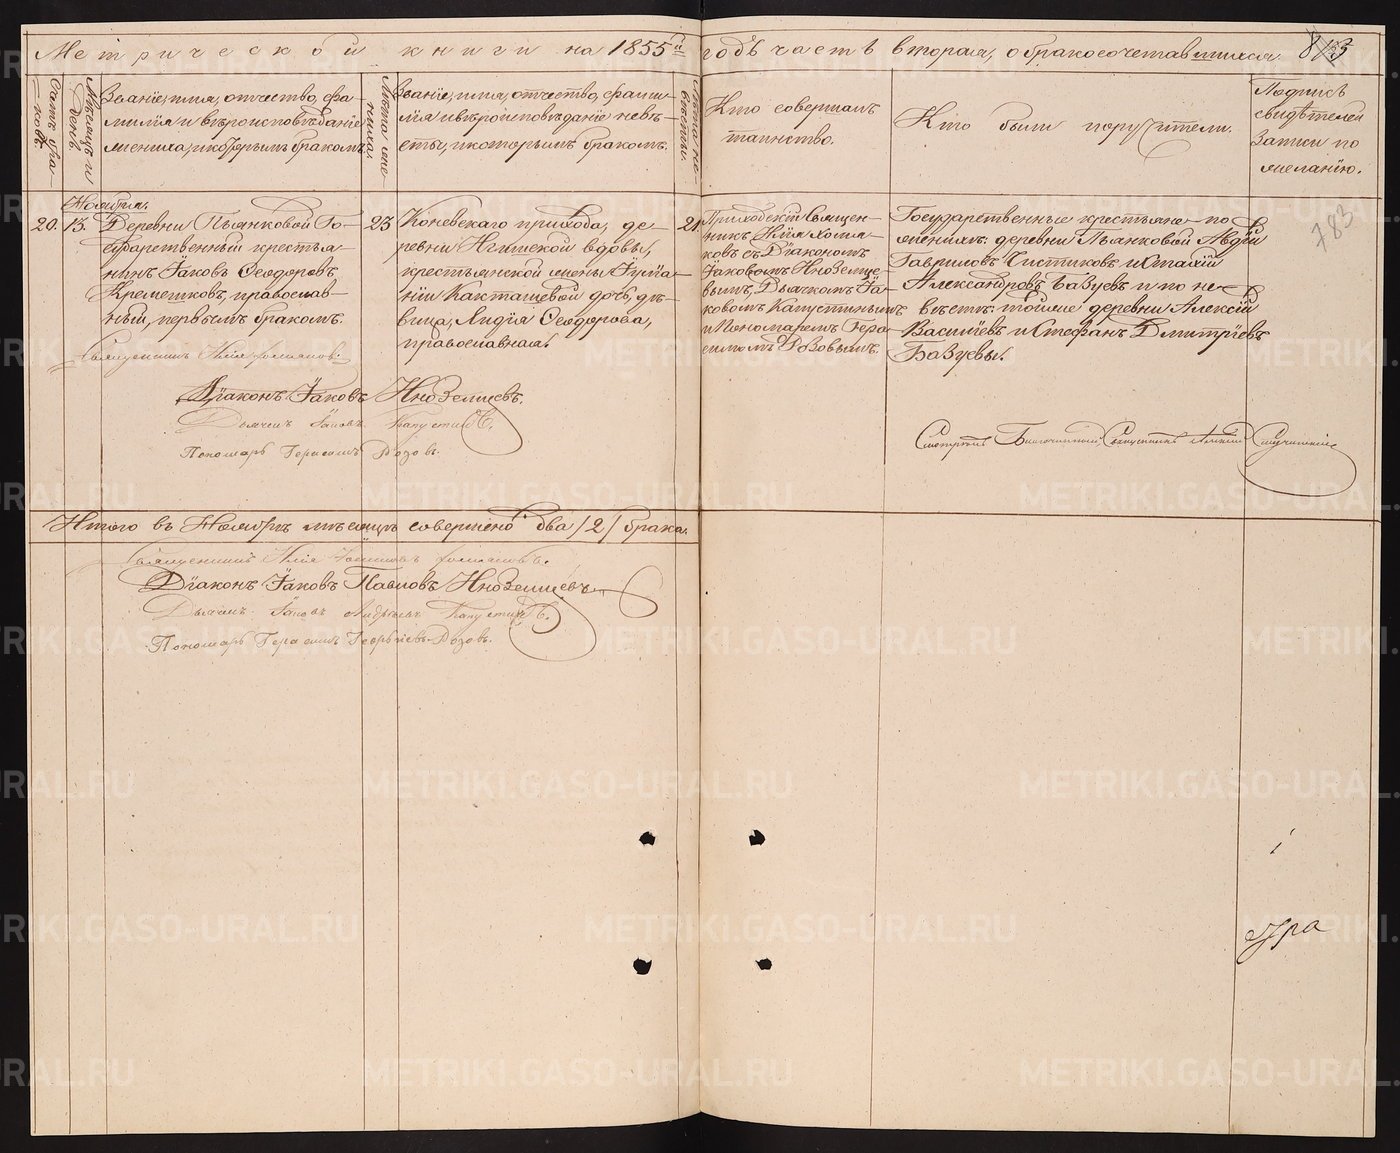 Метрической книги на 1855й годъ часть вторая, о бракосочетавшихся.
Счетъ браковъ.
Мѣсяцъ и день
Званіе, имя, отчество, фа-
милія и вѣроисповѣданіе
жениха, и которымъ бракомъ.
Лѣта жениха.
Званіе, имя, отчество, фами-
лія и вѣроисповѣданіе невѣ-
сты, и которымъ бракомъ.
Лѣта невѣсты.
Кто совершалъ
таинство.
Кто были поручители.
Подпись
свидѣтелей
записи по
желанію.
Ноября.
20.
13.
Деревни Пьянковой Го-
сударственный крестья-
нинъ Іаковъ Ѳеодоровъ
Кремешковъ, православ-
ный, первымъ бракомъ.
Священникъ Илія Холмаковъ.
23
Коневскаго прихода, де-
ревни вдовы,
крестьянской жены Іулiа-
ніи Какташевой дочь, дѣ-
вица, Лидія Ѳеодорова,
православная.
21.
Приходскій Священ-
никъ Илія Холма-
ковъ съ Діакономъ
Іаковомъ Иноземце-
вымъ, Дьячкомъ Іа-
ковомъ Капустинымъ
и Пономаремъ Гера-
симомъ Розовымъ.
Государственные крестьяне по
женихѣ: деревни Пьянковой Авдій
Гавриловъ Чистяковъ и Евстафій
Александровъ Базуевъ и по не-
вѣстѣ: тойже деревни Алексій
Василіевъ и Стефанъ Димитріевъ
Базуевы.
783
Діаконъ Іаковъ Иноземцевъ.
Дьячекъ Іаковъ Капустинъ.
Пономарь Герасимъ Розовъ.
Смотрѣлъ Благочинный Священникъ
Итого въ Ноябрѣ мѣсяцѣ совершено два /2/ брака.
Священникъ Илія Холмаковъ.
Діаконъ Іаковъ Павловъ Иноземцевъ
Дьячекъ Іаковъ Андреевъ Капустинъ.
Пономарь Герасимъ Георгіевъ Розовъ.
METRIKI.GASO-URAL.RU